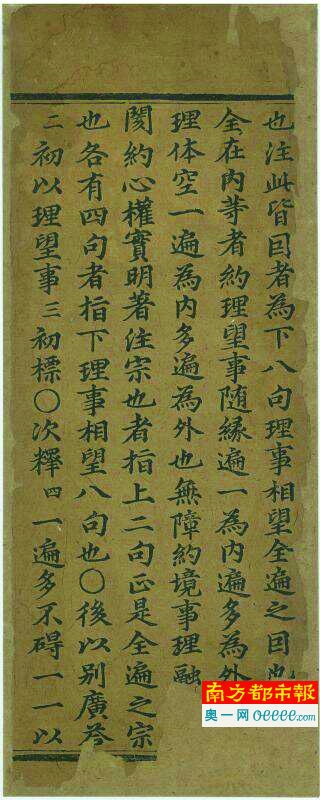 也注此皆因者為下八句理事相望全遍之因
全在内等者約理望事随縁遍一為内遍多為外
理体空一遍為内多遍為外也無障約境事理融
関約心權實明著注宗也者指上二句正是全遍之宗
也各有四句者指下理事相望八句也○後以别廣
二初以理望事三初標○次釋四一遍多不碍一一以
南方都市報
奥一网 oeeee.com